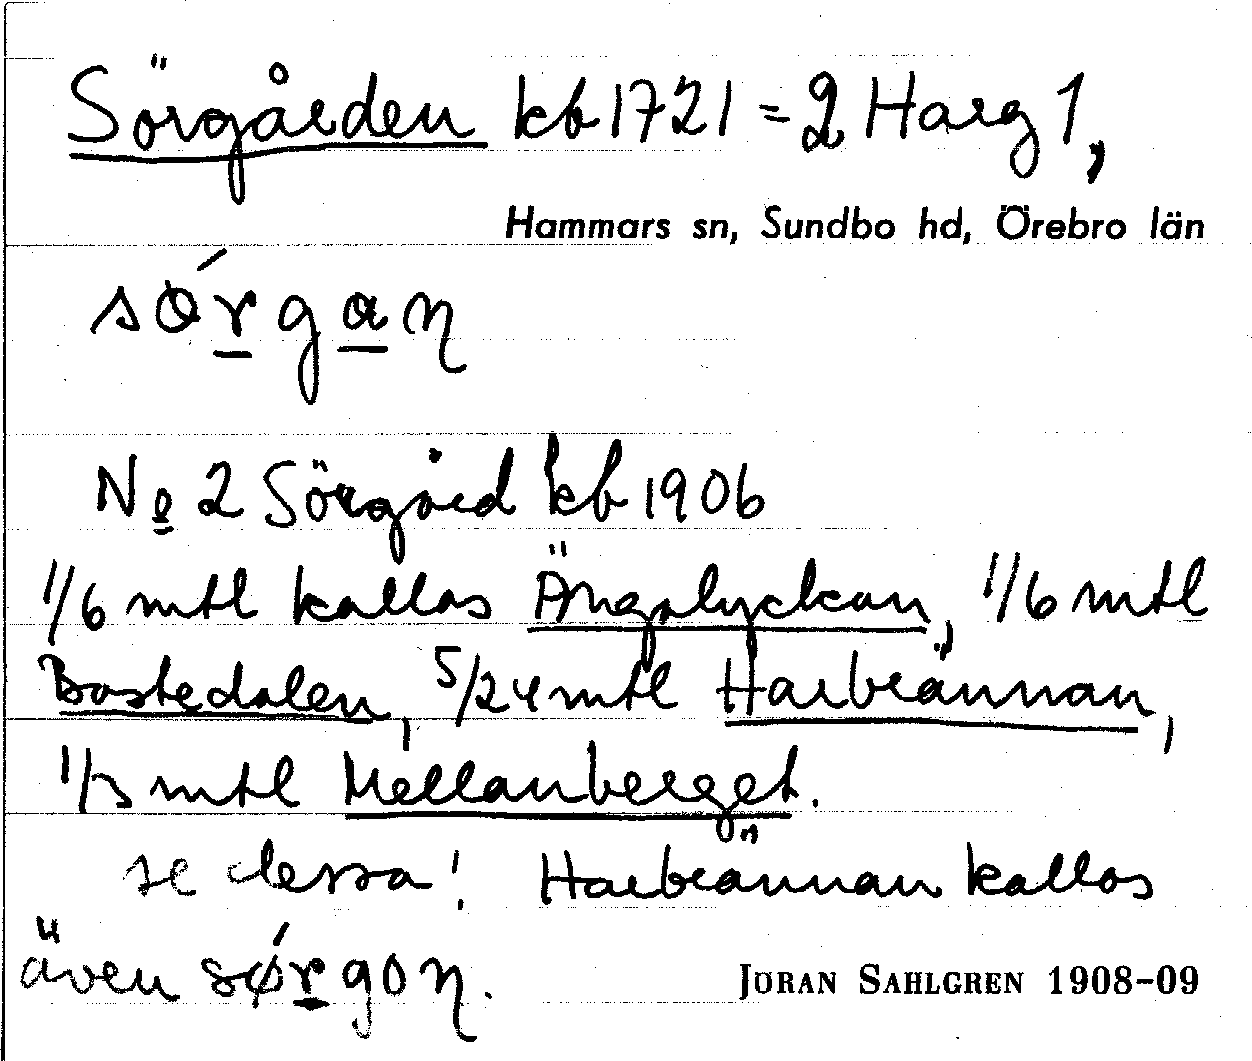 Sörgården kb 1721 = 2 Harg 1,
Hammars sn, Sundbo hd, Örebro län
sǿrgaŋ
No 2 Sörgård kb 1906
1/6 mtl kallas Ängslyckan, 1/6 mtl
Bastedalen, 5/24 mtl Harbrännan,
1/3 mtl Mellanberget.
se dessa! Harbrännan kallas
även sǿrgoŋ.
JÖRAN SAHLGREN 1908-09